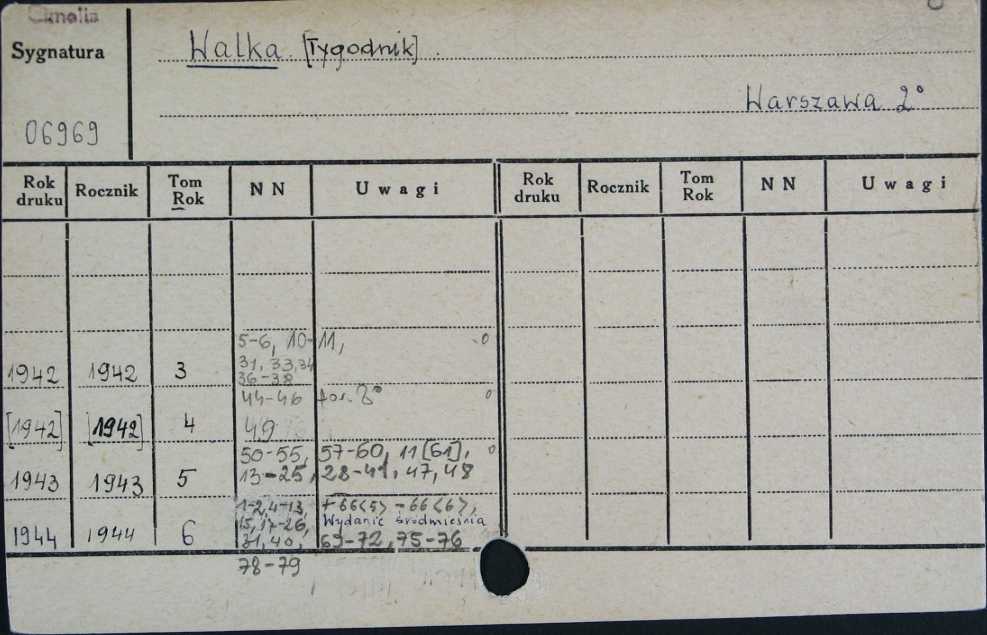 Cimelia
Sygnatura
Walka. [Tygodnik].
Warszawa 2°
06969
Rok druku Rocznik Tom Rok NN Uwagi Rok druku Rocznik Tom Rok NN Uwagi
5-6, 10-11,
31, 33, 34
1942 1942 3 36-38
44-46 for. 8°
[1942] [1942] 4 49
50-55, 57-60, 11[61],
1943 1943 5 13-25, 28-41, 47, 48
1-2, 4-13, +66<5> - 66<6>,
15, 17-26, Wydanie śródmieścia
1944 1944 6 31, 40, 69-72, 75-76
78-79